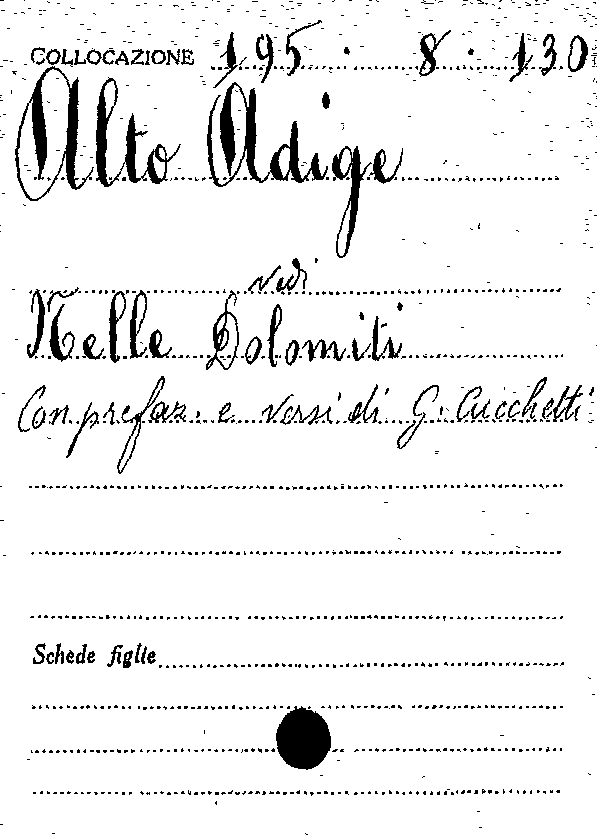 COLLOCAZIONE 195 · 8 · 130
Alto Adige
vedi
Nelle Dolomiti
Con prefaz. e versi di G. Cucchetti
Schede figlie